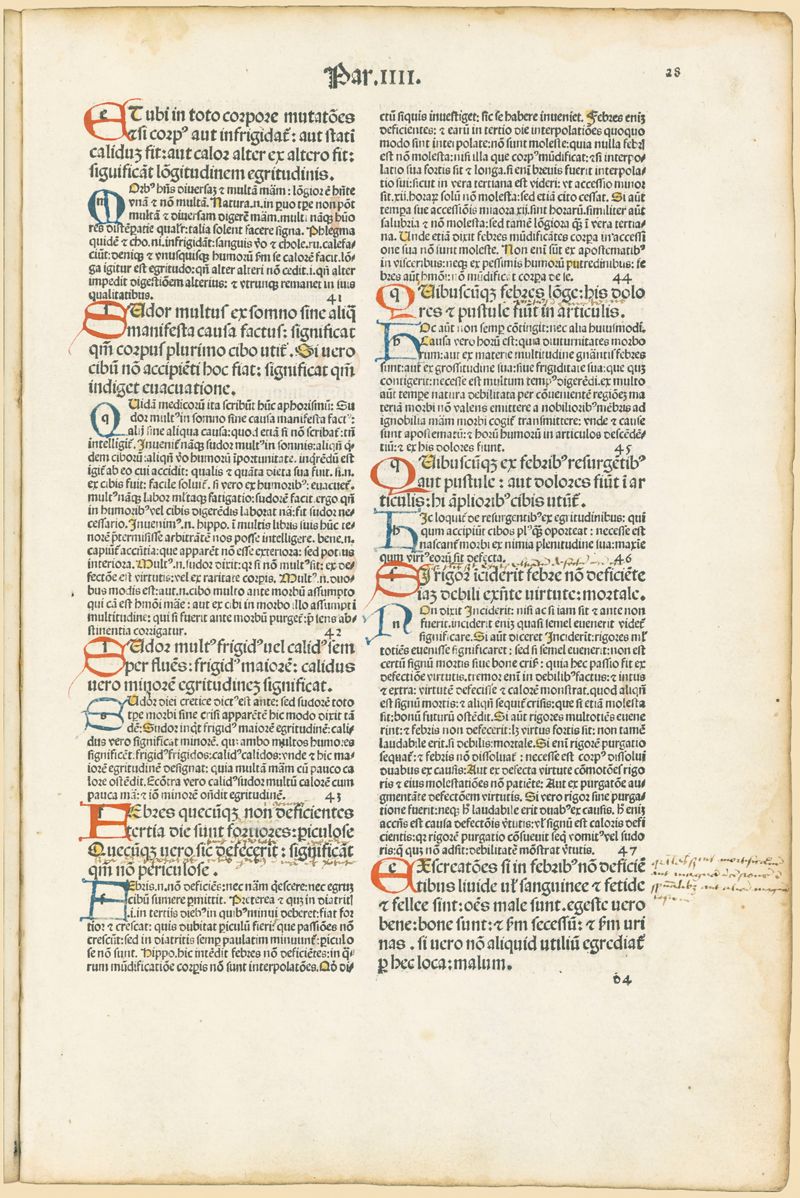 Par.IIII.
28
eT ubi in toto corpore mutatões
⁊ si corpꝰ aut infrigidat̃: aut stati
caliduʒ fit: aut calor alter ex altero fit:
significãt lõgitudinem egritudinis.
Morbꝰ hñs diuersaʒ ⁊ multã mãm: lõgior ẽ hñte
vnã ⁊ nõ multã. Natura.n.in quo tpe non põt
multã ⁊ diuersam digerẽ mãm.
Phlegma
quidẽ ⁊ cho.ni.infrigidãt: sanguis ṽo ⁊ chole.ru.calefa-
ga igitur est egritudo: qñ alter alteri nõ cedit.i.qñ alter
impedit digestiõem alterius: ⁊ vtrunqꝫ remanet in suis
qualitatibus. 41
SUdor multus ex somno sine aliq̃
manifesta causa factus: significat
qm̃ corpus plurimo cibo utit̃. Si uero
cibũ nõ accipiẽti hoc fiat: significat qm̃
indiget euacuatione.
QUidã medicorũ ita scribũt hũc aphorismũ: Su
dor multꝰ in somno sine causa manifesta factꝰ:
aliq̃ sine aliqua causa: quod etiã si nõ scribat̃: tñ
intelligit̃. Inuenit̃ nãqꝫ sudor multꝰ in somnis: aliqñ q̃-
dem ciborũ: aliqñ ṽo humorũ ĩportunitate. inq̃rẽdũ est
igit̃ ab eo cui accidit: qualis ⁊ quãta dieta sua fuit. si.n.
ex cibis fuit: facile soluit̃. si vero ex humoribꝰ: euacuet̃.
multꝰ nãqꝫ labor ml̃taqꝫ fatigatio: sudorẽ facit. ergo qñ
in humoribꝰ vel cibis digerẽdis laborat nã: fit sudor ne-
cessario. Inuenimꝰ.n. hippo. ĩ multis libris suis hũc te-
norẽ p̃termisisse arbitrãtẽ nos posse intelligere. bene.n.
capiũt̃ accñtia: que apparẽt nõ esse exteriora: sed potius
interiora. Multꝰ.n.sudor dixit: q̃ si nõ multꝰ sit: ex de-
fectõe est virtutis: vel ex raritate corpis. Multꝰ.n.duo-
bus modis est: aut.n.cibo multo ante morbũ assumpto
qui cã est hmõi mãe: aut ex cibi in morbo illo assumpti
multitudine: qui si fuerit ante morbũ purget̃: p̃sens abs-
tinentia corrigatur. 42
SUdor multꝰ frigidꝰ uel calidꝰ sem
per fluẽs: frigidꝰ maiorẽ: calidus
uero minorẽ egritudineʒ significat.
SUdor diei cretice dictꝰ est ante: sed sudorẽ toto
tpe morbi sine crisi apparẽtẽ hic modo dixit tã
dẽ: Sudor inq̃t frigidꝰ maiorẽ egritudinẽ: cali-
dus vero significat minorẽ. qm̃ ambo multos humores
significẽt: frigidꝰ frigidos: calidꝰ calidos: vnde ⁊ hic ma-
iorẽ egritudinẽ designat: quia multã mãm cũ pauco ca
lore ostẽdit. Ecõtra vero calidꝰ sudor multũ calorẽ cum
pauca mã: ⁊ iõ minorẽ oñdit egritudinẽ. 43
FEbres quecũqꝫ non deficientes
tertia die sunt fortiores: p̃iculose
Quecũqꝫ uero sic defecerit: significãt
qm̃ nõ periculose.
FEbris.n.nõ deficiẽs: nec nãm q̃escere: nec egrũ
cibũ sumere p̃mittit. Preterea ⁊ quʒ in diatris
.i.in tertiis diebꝰ in quibꝰ minui deberet: fiat for
tior ⁊ crescat: quis dubitat p̃iculũ fieri: que passiões nõ
crescũt: sed in diatritis semp̃ paulatim minuũt̃: p̃iculo
se nõ sunt. Hippo.hic intẽdit febres nõ deficiẽtes: in q̃-
rum mũdificatiõe corp̃is nõ sunt interpolatões. Qd di-
ctũ siquis inuestiget: sic se habere inueniet. Febres eniʒ
deficientes: ⁊ earũ in tertio die interpolatiões quoquo
modo sint interpolate: nõ sunt moleste: quia nulla febris
est nõ molesta: nisi illa que corpꝰ mũdificat: ⁊ si interpo-
latio sua fortis sit ⁊ longa. si enĩ breuis fuerit interpola-
tio sui: sicut in vera tertiana est videri: vt accessio minor
sit.xii.horaꝝ solũ nõ molesta: sed etiã cito cessat. Si aũt
tempa sue accessiõis maiora.xii.sint horarũ. similiter aũt
salubria ⁊ nõ molesta: sed tamẽ lõgiora q̃ʒ ĩ vera tertia-
na. Unde etiã dixit febres mũdificãtes corpa in accessi
one sua nõ sunt moleste. Non enĩ sũt ex apostematibꝰ
in visceribus: neqꝫ ex pessimis humorũ putredinibus: fe
bres aũt hmõi: nõ mũdificãt corpa de se. 44
QUibuscũqꝫ febres lõge: his dolo
res ⁊ pustule fiũt in articulis.
HOc aũt non semp̃ cõtingit: nec alia huiusmodi.
Causa vero horũ est: quia diuturnitates morbo
rum: aut ex materie multitudine gñãtis febres
sunt: aut ex grossitudine sua: siue frigiditate sua: que quʒ
contigerit: necesse est multum tempꝰ digerẽdi. ex multo
aũt tempe natura debilitata per cõuenientẽ regiõeʒ ma
teriã morbi nõ valens emittere a nobilioribꝰ mẽbris ad
ignobilia mãm morbi cogit̃ transmittere: vnde ⁊ cause
sunt apostematũ: ⁊ horũ humorũ in articulos descẽdẽ-
tiũ: ⁊ ex his dolores fiunt. 45
QUibuscũqꝫ ex febribꝰ resurgẽtibꝰ
aut pustule: aut dolores fiũt ĩ ar
ticulis: hi ãplioribꝰ cibis utũt̃.
HIc loquit̃ de resurgentibꝰ ex egritudinibus: qui
quum accipiũt cibos plꝰ q̃ʒ oporteat: necesse est
nascant̃ morbi ex nimia plenitudine sua: maxĩe
quum virtꝰ eorũ sit defecta. 46
SI rigor ĩciderit febre nõ deficiẽte
iaʒ debili exñte virtute: mortale.
NOn dixit Inciderit: nisi ac si iam sit ⁊ ante non
fuerit. inciderit eniʒ quasi semel euenerit videt̃
significare. Si aũt diceret Inciderit: rigores ml̃
totiẽs euenisse significaret: sed si semel euenerit: non est
certũ signũ mortis siue bone crisꝰ: quia hec passio fit ex
defectiõe virtutis. tremor enĩ in debilibꝰ factus: ⁊ intus
⁊ extra: virtutẽ defecisse ⁊ calorẽ monstrat. quod aliqñ
est signũ mortis: ⁊ aliqñ sequit̃ crisis: que si etiã molesta
sit: bonũ futurũ ostẽdit. Si aũt rigores multotiẽs euene
rint: ⁊ febris non defecerit: lʒ virtus fortis sit: non tamẽ
laudabile erit. si debilis: mortale. Si enĩ rigorẽ purgatio
sequat̃: ⁊ febris nõ dissoluat̃: necesse est corpꝰ dissolui
duabus ex causis: Aut ex defecta virtute cõmotões rigo
ris ⁊ eius molestatiões nõ patiẽte: Aut ex purgatõe au-
gmentãte defectõem virtutis. Si vero rigor sine purga-
tione fuerit: neqꝫ hʒ laudabile erit duabꝰ ex causis. hʒ eniʒ
accñs est causa defectõis ṽtutis: vl̃ signũ est caloris defi
cientis: q̃ rigorẽ purgatio cõsueuit seq̃ vomitꝰ vel sudo
ris: q̃ quʒ nõ adsit: debilitatẽ mõstrat ṽtutis. 47
EXscreatões si in febribꝰ nõ deficiẽ
tibus liuide ul̃ sanguinee ⁊ fetide
⁊ fellee sint: oẽs male sunt. egeste uero
bene: bone sunt: ⁊ s̃m secessũ: ⁊ s̃m uri
nas. si uero nõ aliquid utiliũ egrediat̃
ꝑ hec loca: malum.
d4